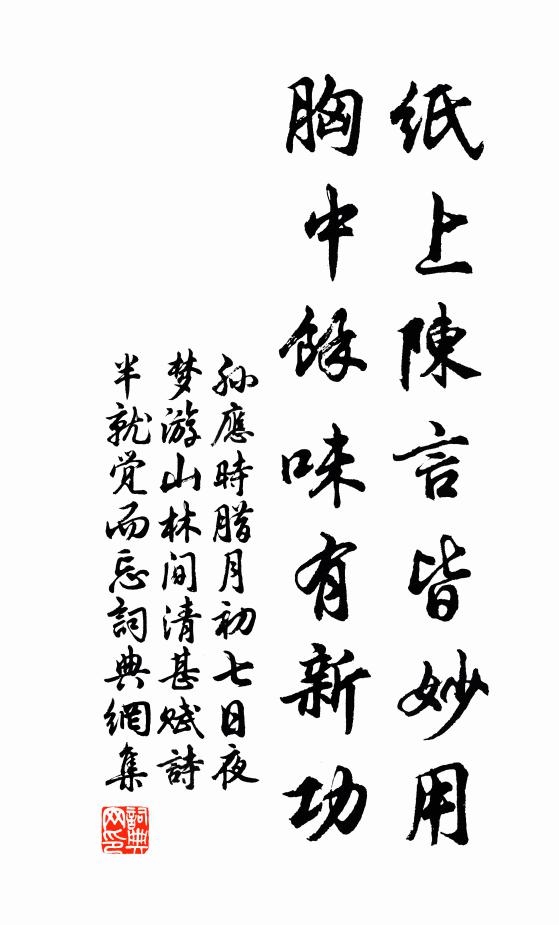 紙上陳言皆妙用
胸中餘味有新功
孙應時腊月初七日夜
梦游山林间清甚赋詩
半就觉而忘詞典網集
詞典网印